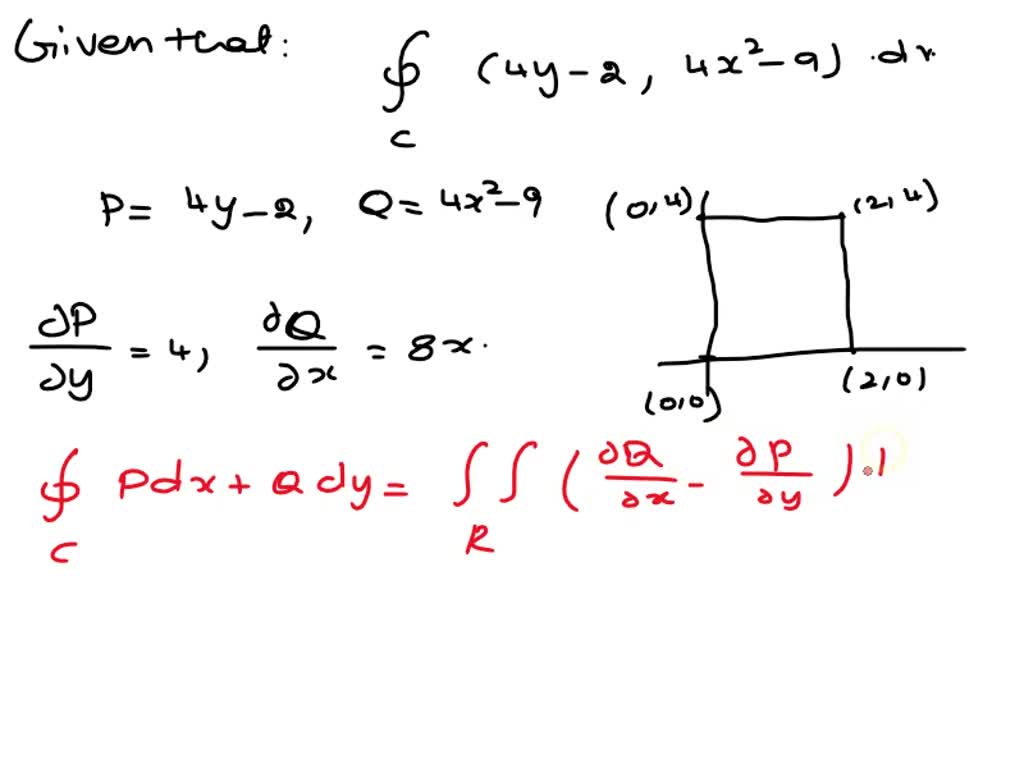 Given that:
∮_C (4y-2, 4x²-9) .dr.
P= 4y-2, Q= 4x²-9
(0,4) (2,4)
∂P/∂y = 4, ∂Q/∂x = 8x.
(0,0) (2,0)
∮_C Pdx+Qdy= ∫∫_R (∂Q/∂x - ∂P/∂y)